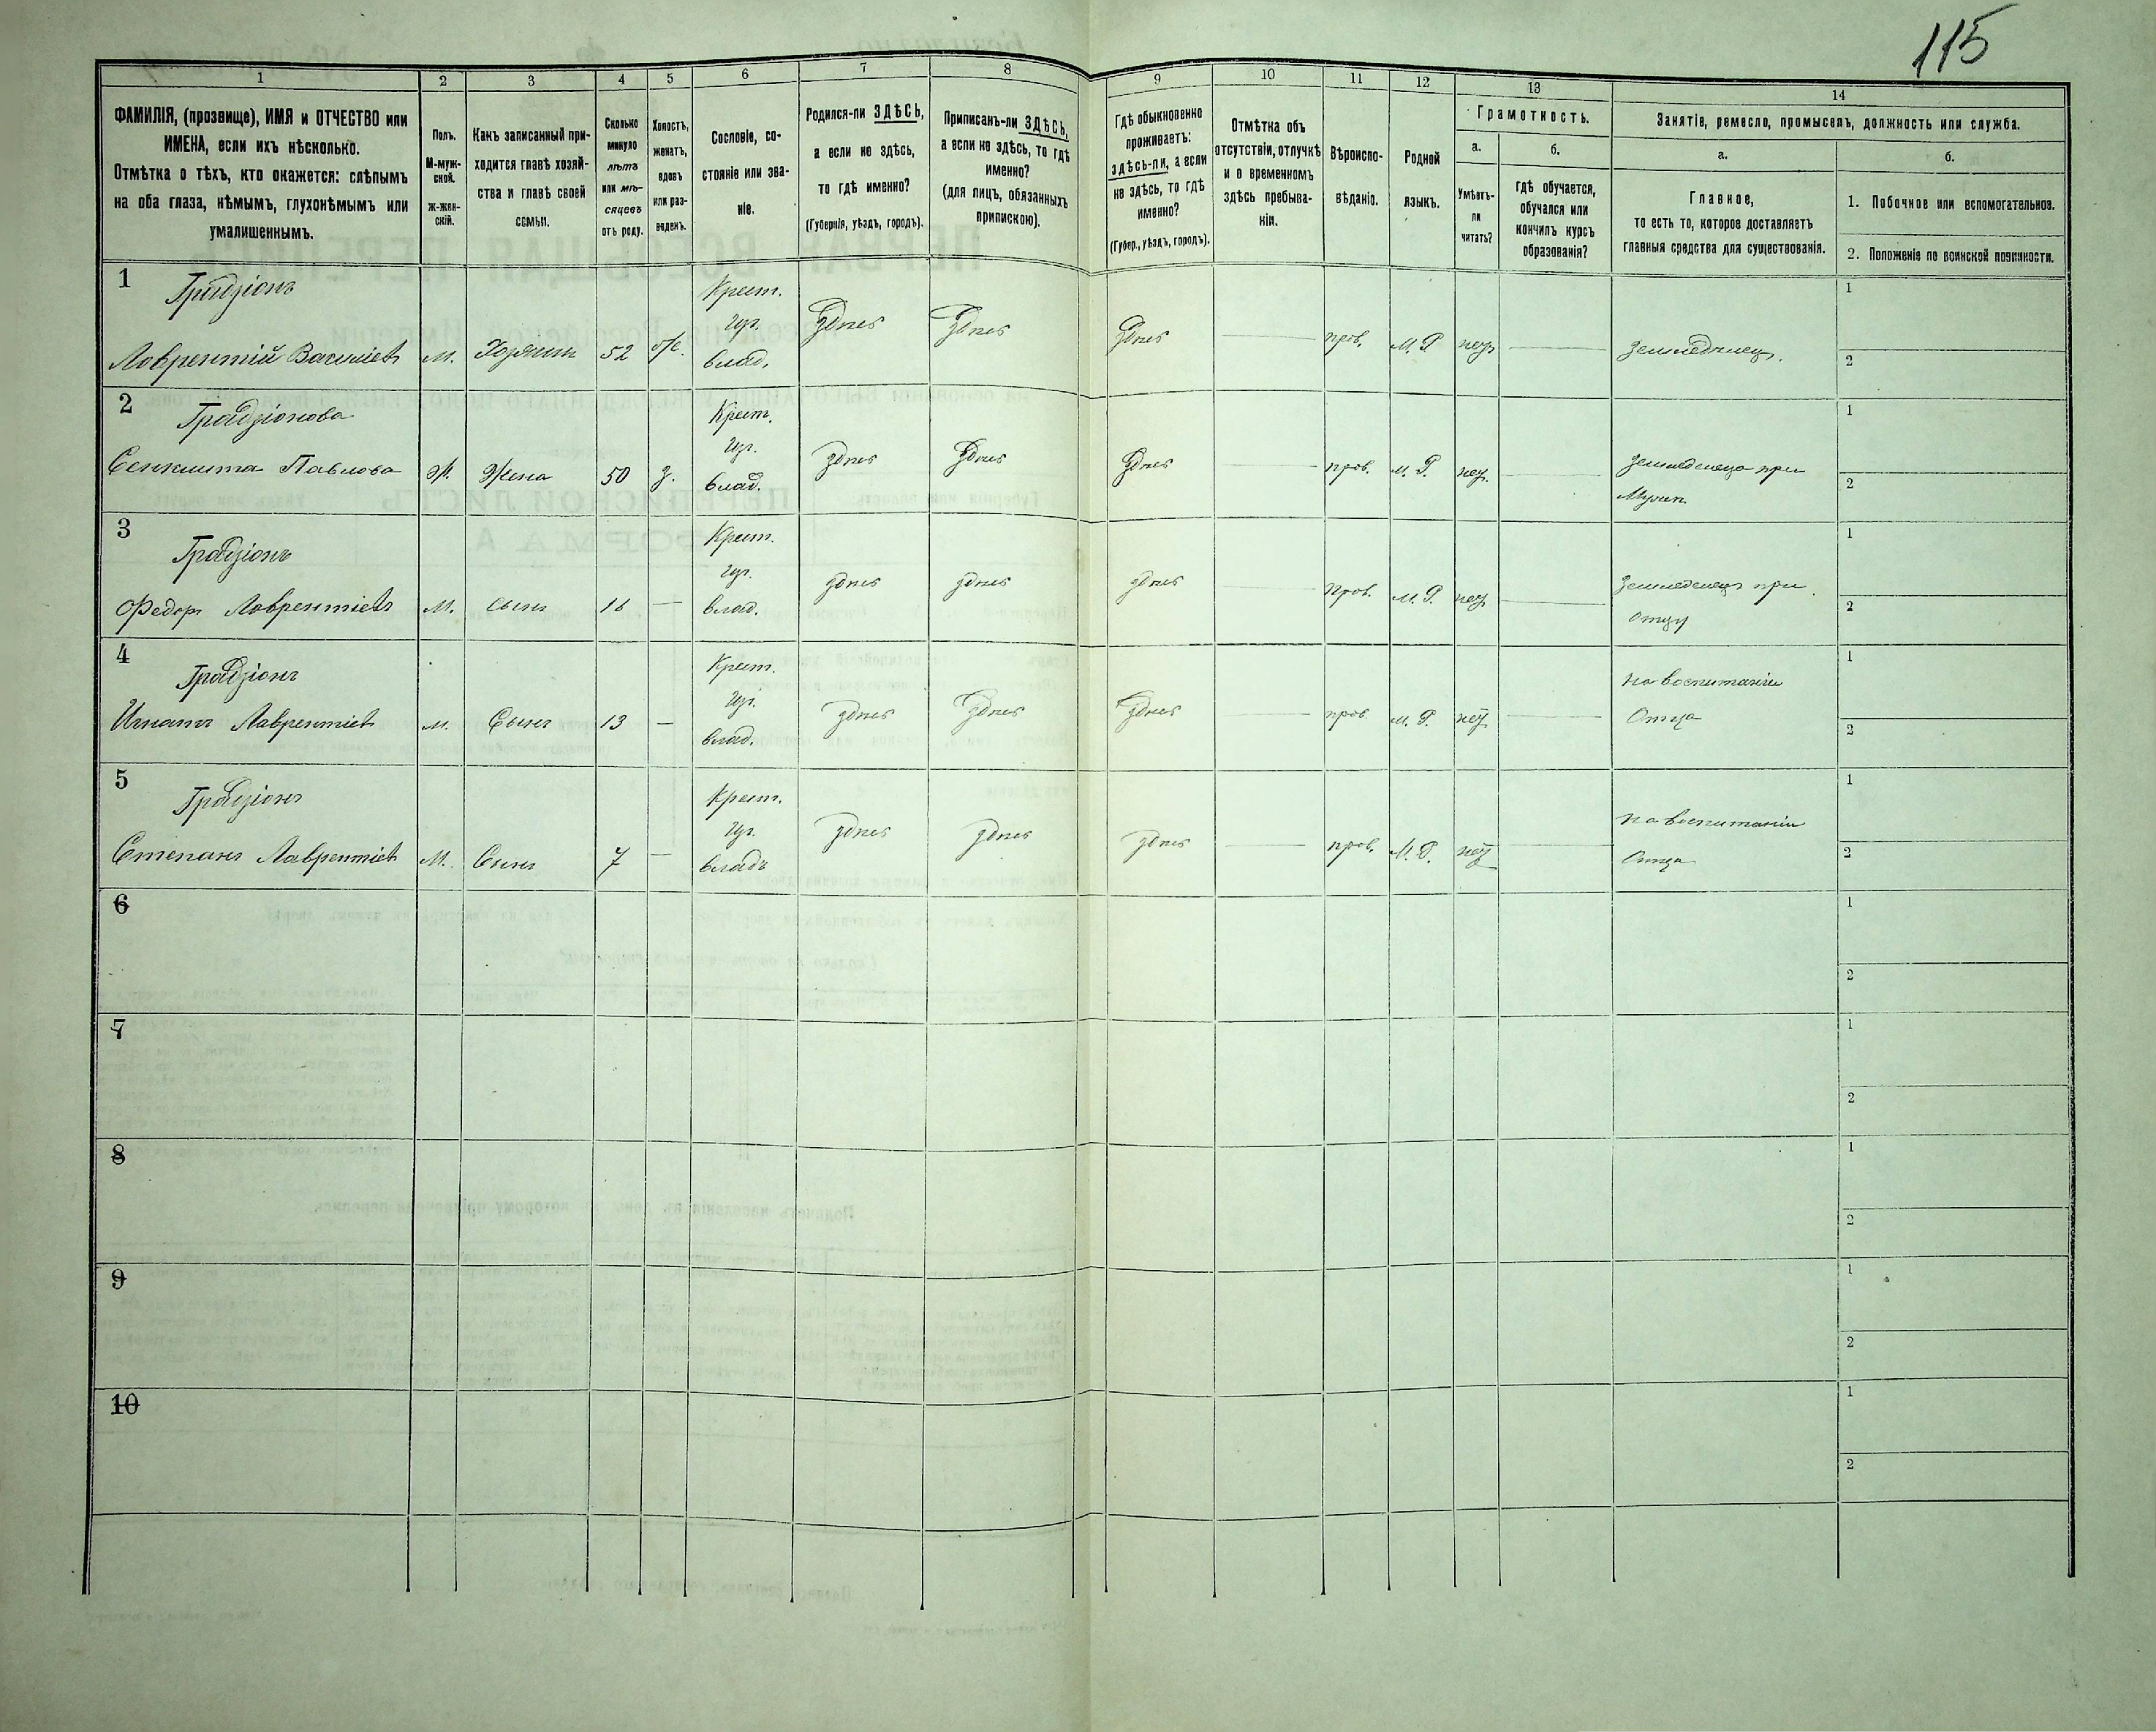 115
1
2
3
4
5
6
7
8
9
10
11
12
13
14
ФАМИЛІЯ, (прозвище), ИМЯ и ОТЧЕСТВО или
ИМЕНА, если ихъ нѣсколько.
Отмѣтка о тѣхъ, кто окажется: слѣпымъ
на оба глаза, нѣмымъ, глухонѣмымъ или
умалишеннымъ.
Полъ.
М-муж-
ской.
Ж-жен-
скій.
Какъ записанный при-
ходится главѣ хозяй-
ства и главѣ своей
семьи.
Сколько
минуло
лѣтъ
или мѣ-
сяцевъ
отъ роду.
Холостъ,
женатъ,
вдовъ
или раз-
веденъ.
Сословіе, со-
стояніе или зва-
ніе.
Родился-ли ЗДѢСЬ,
а если не здѣсь,
то гдѣ именно?
(Губернія, уѣздъ, городъ).
Приписанъ-ли ЗДѢСЬ,
а если не здѣсь, то гдѣ
именно?
(для лицъ, обязанныхъ
припискою).
Гдѣ обыкновенно
проживаетъ:
здѣсь-ли, а если
не здѣсь, то гдѣ
именно?
(Губер., уѣздъ, городъ).
Отмѣтка объ
отсутствіи, отлучкѣ
и о временномъ
здѣсь пребыва-
ніи.
Вѣроиспо-
вѣданіе.
Родной
языкъ.
Грамотность.
а.
Умѣетъ-
ли
читать?
б.
Гдѣ обучается,
обучался или
кончилъ курсъ
образованія?
Занятіе, ремесло, промыселъ, должность или служба.
а.
Главное,
то есть то, которое доставляетъ
главныя средства для существованія.
б.
1. Побочное или вспомогательное.
2. Положеніе по воинской повинности.
1
Градзіонъ
Лаврентій Василіевъ
М.
Хозяинъ
52
Ж.
Крест.
изъ
влад.
здѣсь
здѣсь
здѣсь
прав.
М. Р.
нѣтъ
земледѣлецъ.
1
2
2
Градзіонова
Павлова
Ж.
Жена
50
З.
Крест.
изъ
влад.
здѣсь
здѣсь
здѣсь
прав.
М. Р.
нѣтъ
при
1
2
3
Градзіонъ
Федоръ Лаврентіевъ
М.
сынъ
—
Крест.
изъ
влад.
здѣсь
здѣсь
здѣсь
прав.
М. Р.
нѣтъ
земледелецъ при
Отцу
1
2
4
Градзіонъ
Игнатъ Лаврентіевъ
М.
Сынъ
13
—
Крест.
изъ
влад.
здѣсь
здѣсь
здѣсь
прав.
М. Р.
нѣтъ
на воспитаніи
Отца
1
2
5
Градзіонъ
Степанъ Лаврентіевъ
М.
Сынъ
7
—
Крест.
изъ
владъ
здѣсь
здѣсь
здѣсь
прав.
М. Р.
нѣтъ
на воспитаніи
Отца
1
2
6
1
2
7
1
2
8
1
2
9
1
2
10
1
2